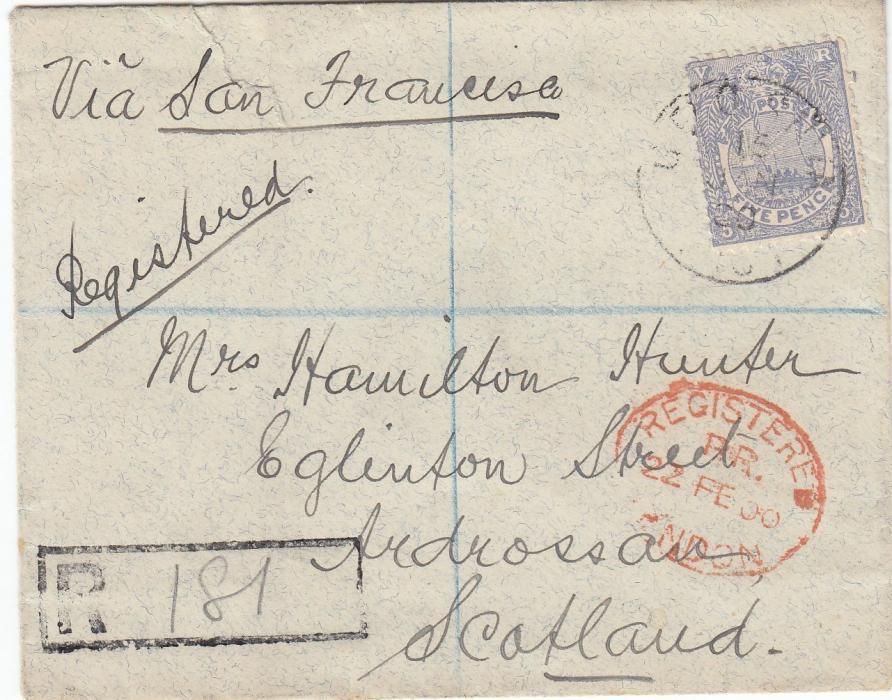 Viă San Francisco
V R
POSTAGE
15
FIVE PENCE
5 5
Registered.
Mrs Hamilton Hunter
REGISTERED
P.R.
22 FE 00
NDON
Eglinton Street
Ardrossan
R 181
Scotland.